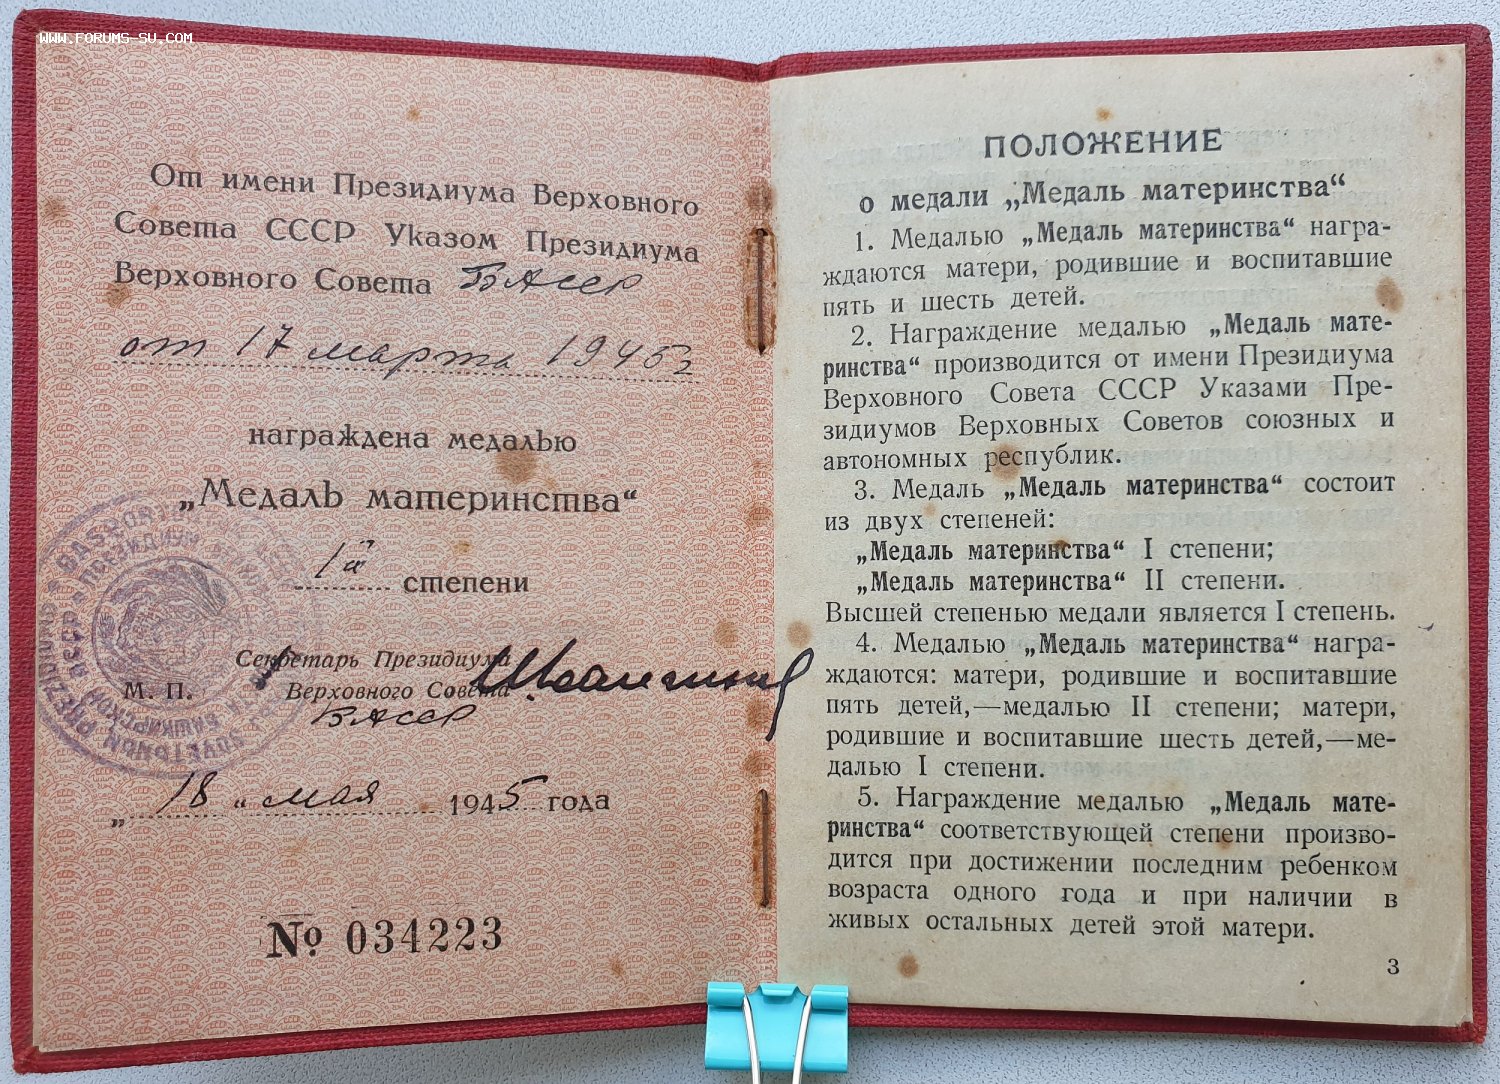 WWW.FORUMS-SU.COM
От имени Президиума Верховного
Совета СССР Указом Президиума
Верховного Совета БАССР
от 17 марта 1945 г
награждена медалью
„Медаль материнства“
1й степени
Секретарь Президиума
М. П. Верховного Совета
БАССР
„18“ мая 1945 года
№ 034223
ПОЛОЖЕНИЕ
о медали „Медаль материнства“
1. Медалью „Медаль материнства“ награ-
ждаются матери, родившие и воспитавшие
пять и шесть детей.
2. Награждение медалью „Медаль мате-
ринства“ производится от имени Президиума
Верховного Совета СССР Указами Пре-
зидиумов Верховных Советов союзных и
автономных республик.
3. Медаль „Медаль материнства“ состоит
из двух степеней:
„Медаль материнства“ I степени;
„Медаль материнства“ II степени.
Высшей степенью медали является I степень.
4. Медалью „Медаль материнства“ награ-
ждаются: матери, родившие и воспитавшие
пять детей,—медалью II степени; матери,
родившие и воспитавшие шесть детей,—ме-
далью I степени.
5. Награждение медалью „Медаль мате-
ринства“ соответствующей степени произво-
дится при достижении последним ребенком
возраста одного года и при наличии в
живых остальных детей этой матери.
3